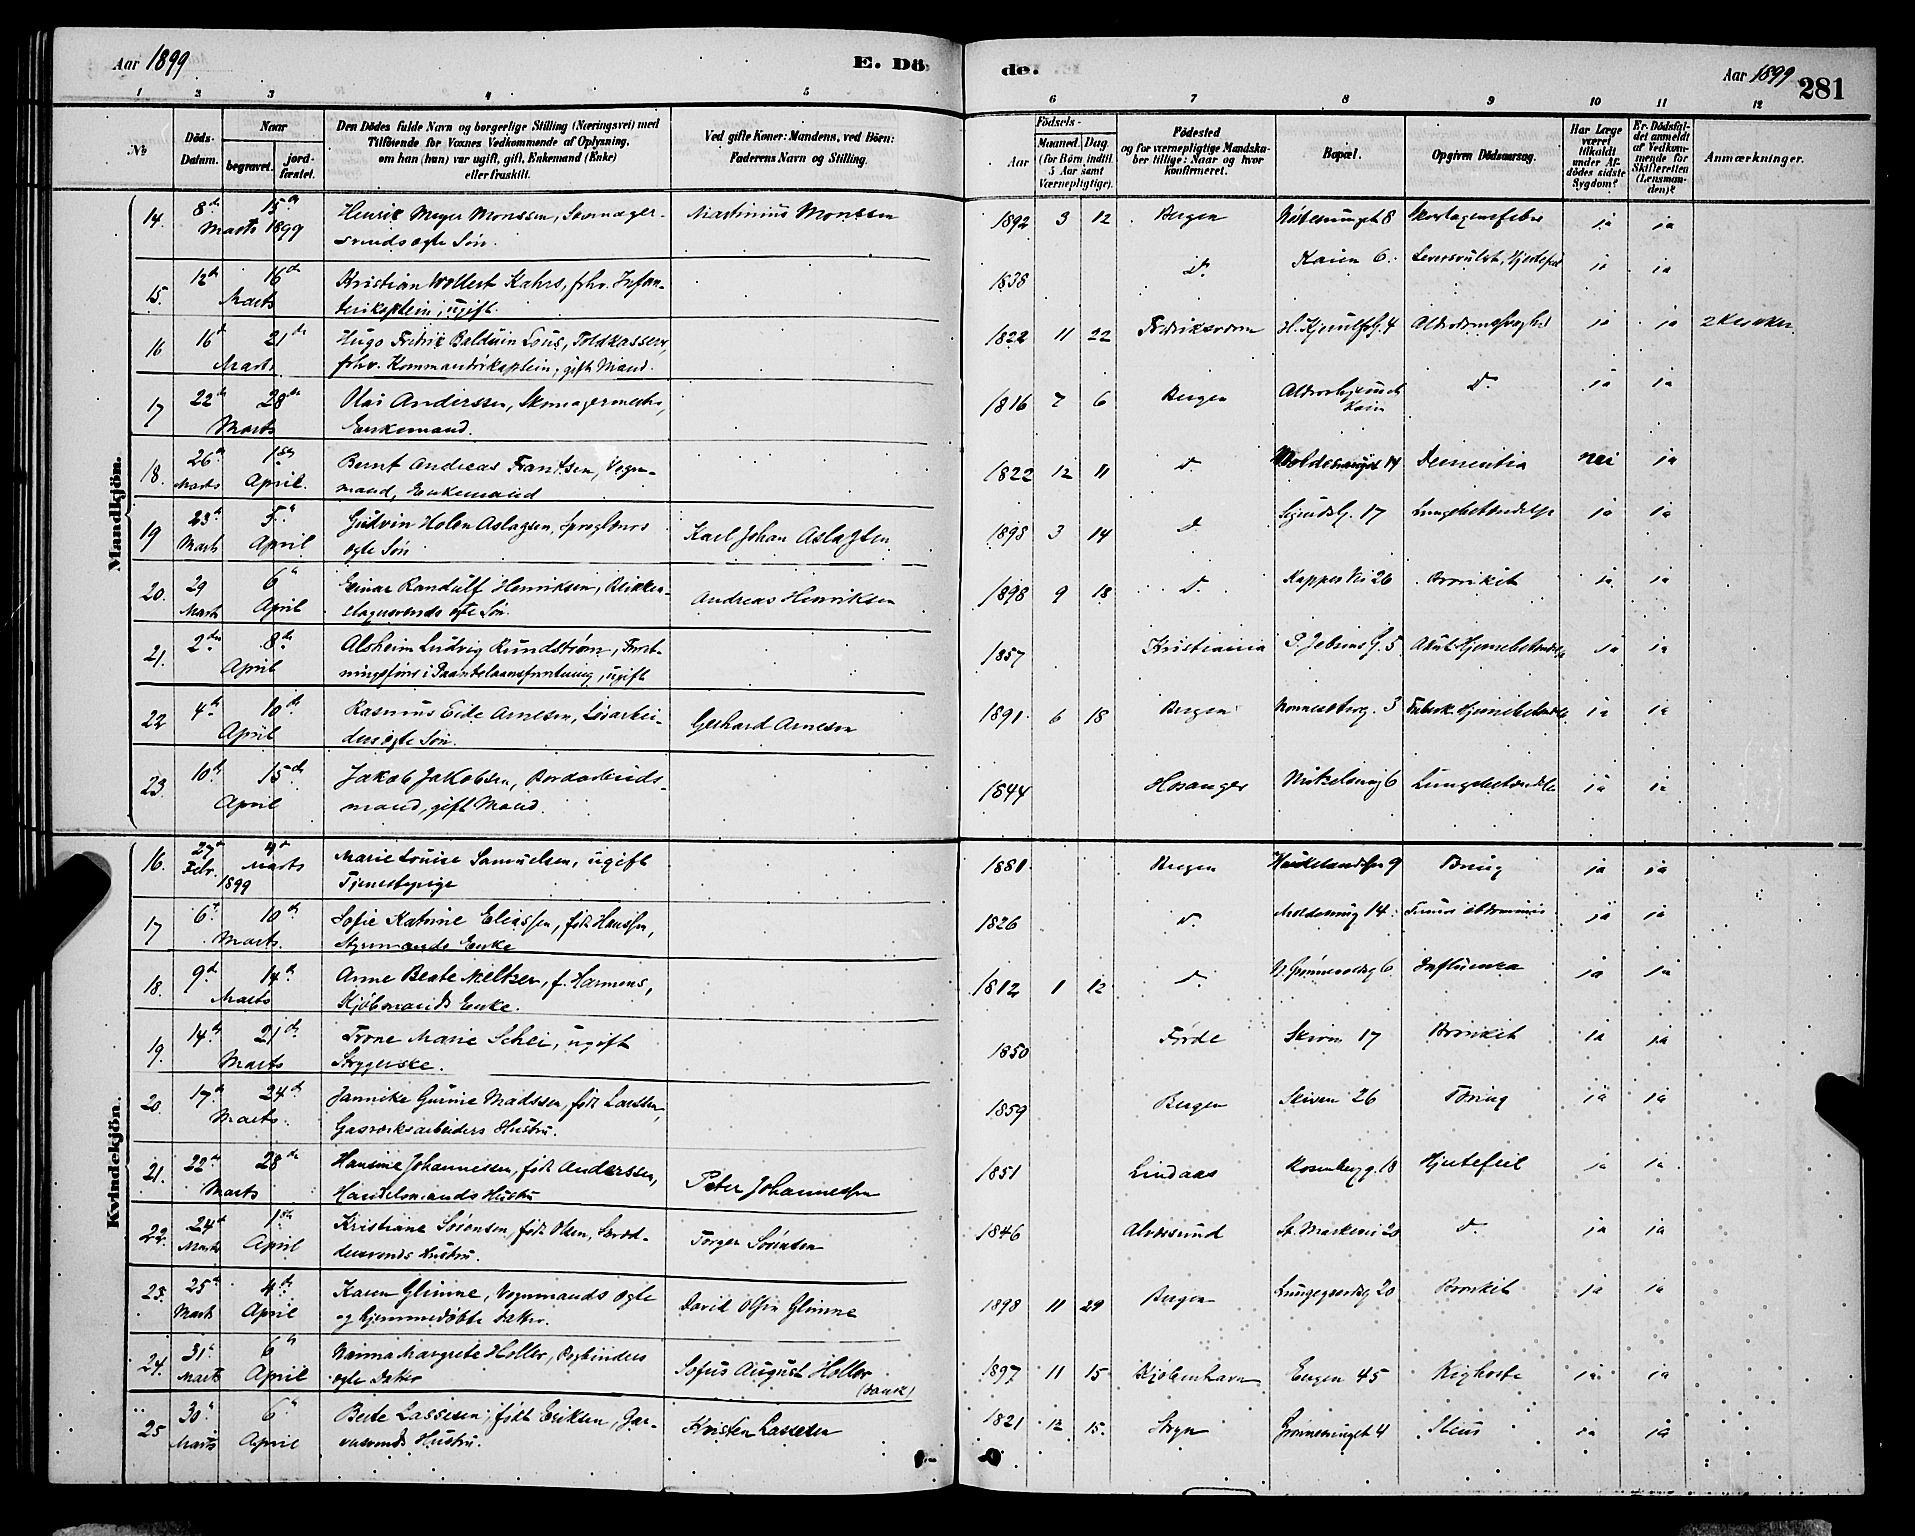 Aar 1899
E. Dö-
de.
Aar 1899
281
1 2 3 4 5 6 7 8 9 10 11 12
No
Döds-Datum.
Naar
begravet.
jordfæstet.
Den Dödes fulde Navn og borgerlige Stilling (Næringsvei) med
Tilföiende for Voxnes Vedkommende af Oplysning,
om han (hun) var ugift, gift, Enkemand (Enke)
eller fraskilt.
Ved gifte Koner: Mandens, ved Börn:
Faderens Navn og Stilling.
Födsels-
Aar
Maaned. Dag.
(for Börn indtil
5 Aar samt
Værnepligtige).
Födested
og for værnepligtige Mandska-
ber tillige: Naar og hvor
konfirmeret.
Bopæl.
Opgiven Dödsaarsag.
Har Læge
været
tilkaldt
under Af-
dödes sidste
Sygdom?
Er Dödsfal-
det anmeldt
af Vedkom-
mende for
Skifteretten
(Lensman-
den)?
Anmærkninger.
Mandkjön.
14. 8de 15de Henrik Meyer Monssen, Martinius Monssen 1892 3 12 Bergen 8 Skarlagensfeber ja ja
Marts 1899 svends ægte Søn.
15. 12te 16de Kristian Wollert Kahrs, fhv. Infan- 1838 Do Kaien 6. ja ja
Marts terikaptein, ugift.
16 16de 21de Hugo Fredrik Balduin Lous, Toldkasserer, 1822 11 22 Fredriksværn 4 ja ja
Marts fhv. Kommandørkaptein, gift Mand.
17 22de 28de Olai Anderssen, Skomagermester, 1816 7 6 Bergen Do ja ja
Marts Enkemand.
18. 26de 1ste Bernt Andreas Frantsen, Vogn- 1822 12 11 Do 14 Dementia nei ja
Marts April. mand, Enkemand
19 23de 5te Holen Aslagsen, Karl Johan Aslagsen 1898 3 14 Do 17 Lungebetændelse ja ja
Marts April ægte Søn
20. 29 6te Einar Randulf Henriksen, Blikken- Andreas Henriksen 1898 9 18 Do 26 Bronkit ja ja
Marts April slagersvends ægte Søn.
21. 2den 8de Ludvig Rundstrøm, 1857 Kristiania 5 Akut Hjernebetændelse ja ja
April ugift
22 4de 10de Rasmus Eide Arnesen, Løsarbei- Gerhard Arnesen 1891 6 18 Bergen 3 Hjernebetændelse ja ja
April ders ægte Søn.
23. 10de 15de Jakob Jakobsen, 1844 Hosanger 6 Lungebetændelse ja ja
April mand, gift Mand.
Kvindekjön.
16. 27de Marie Louise Samuelsen, ugift 1881 Bergen 9 Tæring ja ja
Febr. Marts 1899 Tjenestepige
17 6te 10de Sofie Katrine Eliassen, født Hanssen, 1826 Do 14 ja ja
Marts. Styrmands Enke
18. 9de 14de Anne Beate Meltzer, f. Harmens, 1812 1 12 Do 6 Influenza ja ja
Marts Kjøbmands Enke.
19. 14de 21de Marie Schei, ugift 1850 Førde 17 Bronkit ja ja
Marts Strygerske.
20. 17de 24de Jannike Gurine Madssen, født Larssen, 1859 Bergen 26 Tæring ja ja
Marts. Gasværksarbeiders Hustru.
21. 22de 28de Hansine Johannessen, født Anderssen, Peter Johannessen 1851 Lindaas Rosenbergg. 18 Hjertefeil ja ja
Marts Handelsmands Hustru
22. 24de 1ste Kristiane Sørensen, født Olsen, Torger Sørensen 1846 Alversund St. Markevei 20 Do ja ja
Marts April Hustru.
23. 25de 4de Karen Glimme, Vognmands ægte David Olsen Glimme 1898 11 29 Bergen 20 Bronkit ja ja
Marts April og hjemmedøbte Datter.
24. 31te 6te Nanna Margrete Holler, Bogbinders Sofus August Holler 1897 11 15 Kjøbenhavn Engen 45 Kighoste ja ja
Marts April ægte Datter (dansk)
25 30te 6te Beate Lassesen, født Eriksen, Gar- Kristen Lassesen 1821 12 15. Stryn 4 Ileus ja ja
Marts April versvends Hustru.